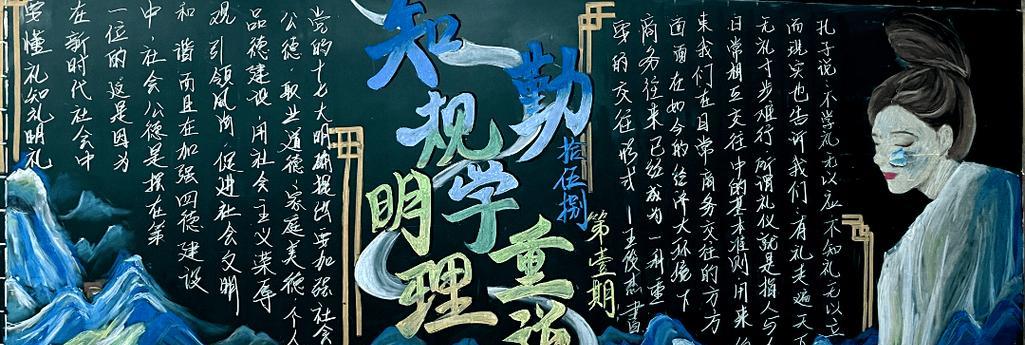 孔子说:不学礼无以立,不知礼无以立
而现实也告诉我们:有礼走遍天下
无礼寸步难行,所谓礼仪就是指人与
日常相互交往中的基本准则,用来
来我们在日常商务交往的方方
面面在如今的经济大环境下
商务往来已经成为一种重
要的交往形式
—王俊杰书
第壹期
拾伍捌
勤学重
知规明理
党的十七大明确提出要加强社会
公德·职业道德·家庭美德·个人
品德建设·用社会主义荣辱
观·引领风尚·促进社会文明
和谐·而且在加强四德建设
中·社会公德是摆在第
一位的·这是因为
在新时代社会中
要懂礼知礼明礼